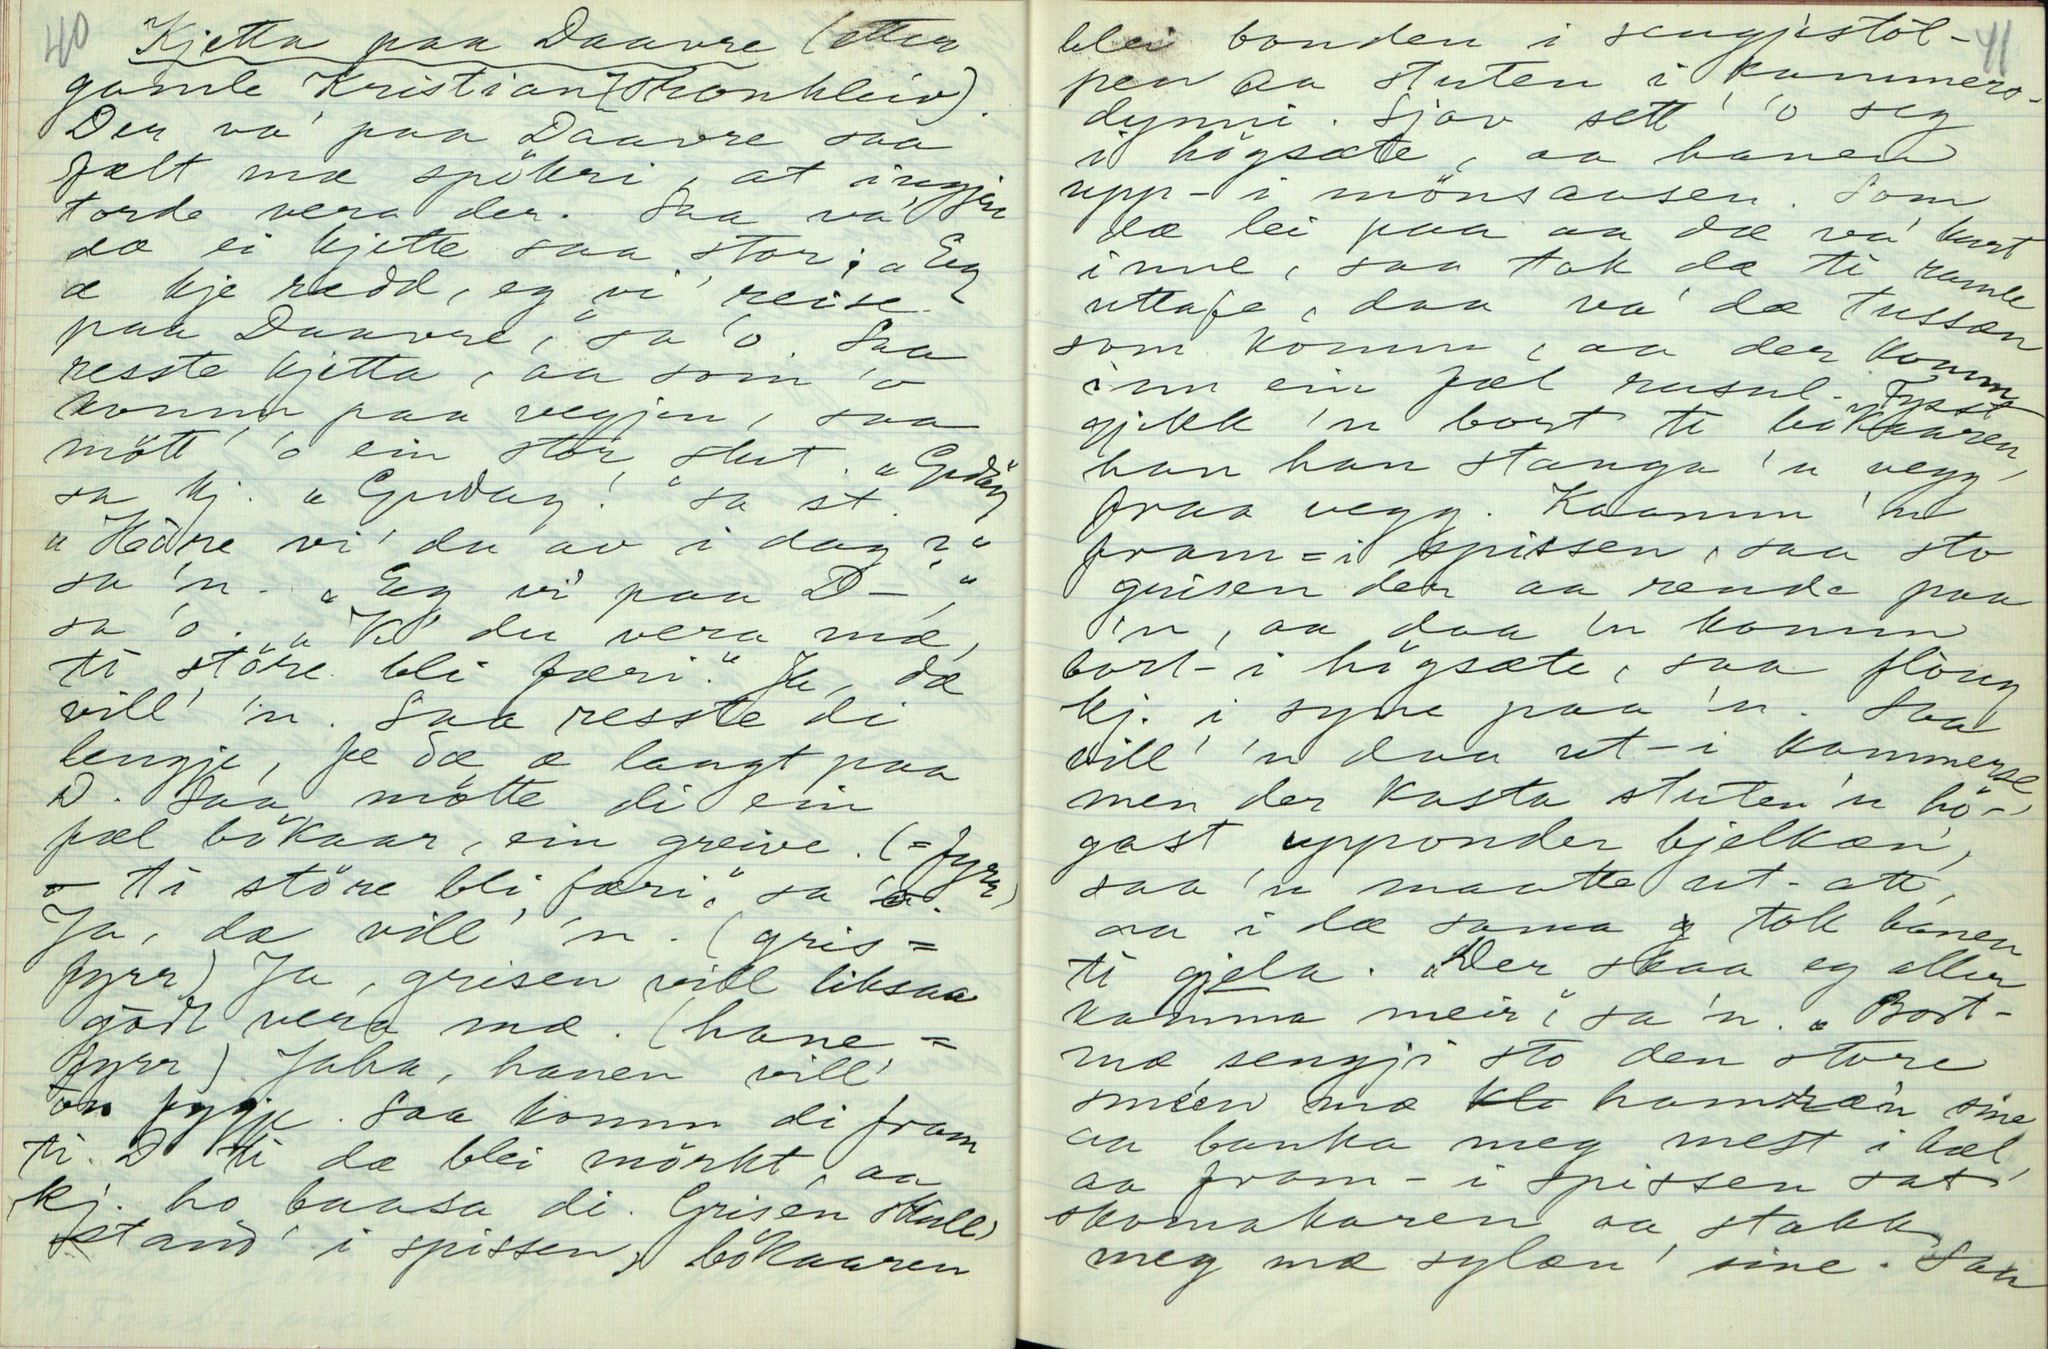 40
Kjetta paa Daavre (etter
gamle Kristian Skonkleiv).
Der va' paa Daavre saa
fælt mæ spökri, at ingjen
torde vera der. Saa va'
dæ ei kjette saa stor: "Eg
æ kje rædd, eg vi' reise
paa Daavre," sa 'o. Saa
resste kjetta, aa som 'o
komm paa vegjen, saa
mött' 'o ein stor stut. "Gudag"
sa kj. "Gudag!" sa st.
"Hòre vi' du av i dag?"
sa 'n. "Eg vi' paa D-,"
sa 'o. "K' du vera mæ,
ti störe bli færi." Ja, dæ
vill' 'n. Saa resste di
lengje, fe dæ æ langt paa
D. Saa mötte di ein
fæl bökaar, ein greive. (= fyrr)
- ti störe bli færi," sa 'o.
Ja, dæ vill' 'n. (gris =
fyrr) Ja, grisen vill liksaa
godt vera mæ. (hane =
fyrr) Jaha, hanen vill'
fygje. Saa komm di fram
ti D ti dæ blei mörkt, aa
kj. ho baasa di. Grisen skull'
stand' i spissen, bökaaren
41
blei bonden i sengjestöl-
pen aa stuten i kammers-
dynni. Sjøv sett' 'o seg
i högsæte, aa hanen
upp-i mönsaasen. Som
dæ lei paa aa dæ va' kart
inne, saa tok dæ ti ramle
uttafe, daa va' dæ tussan
som komm, aa der komm
inn ein fæl rusul. Fysst
gjekk 'n bort ti bökaaren,
han han stanga 'n vegg
fraa vegg. Kaamm 'n
fram-i spissen, saa sto
grisen der aa rende paa
'n, aa daa 'n komm
bort-i högsæte, saa flaug
kj. i syne paa 'n. Saa
vill' 'n daa ut-i kammerse,
men der kasta stuten 'n hö-
gast upponder bjelkæn,
saa 'n maatte ut-att,
aa i dæ sama tok hanen
ti gjela. "Der skaa eg aller
kamma meir," sa 'n. "Bort-
mæ sengji sto den store
smien mæ hamræ'n sine
aa banka meg mest i hæl,
aa fram-i spissen sat
skomakaren aa stakk
meg mæ sylæn' sine. Saa